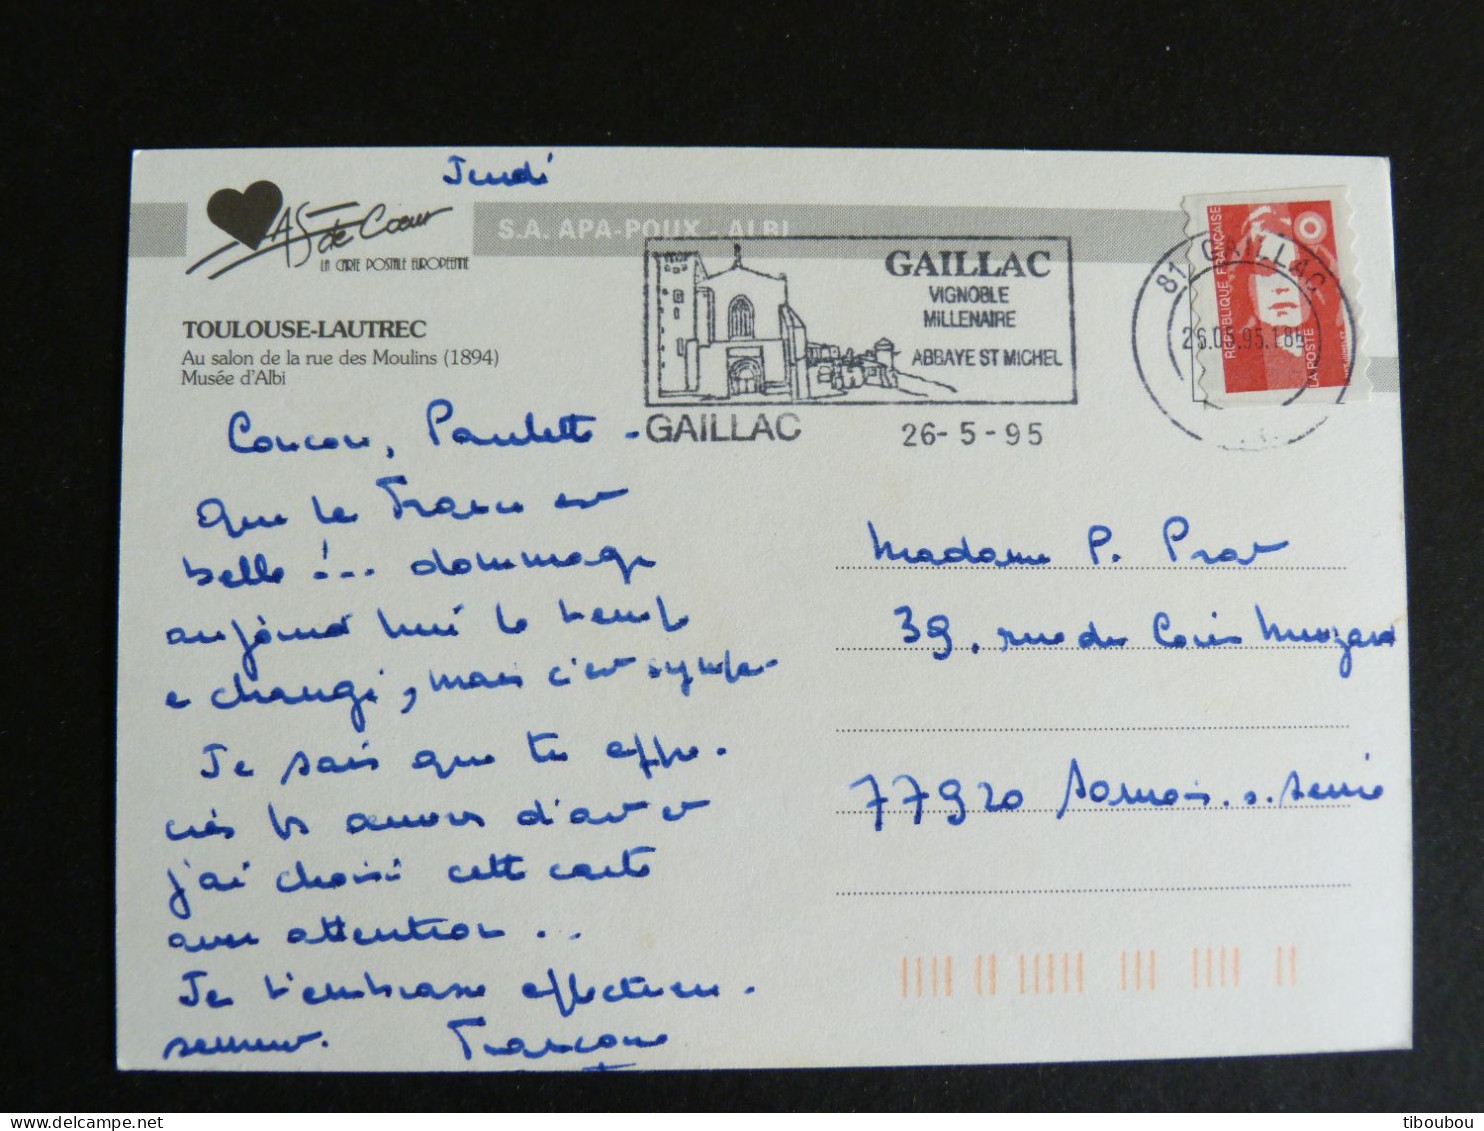 Jeudi
AS de Coeur
LA CARTE POSTALE EUROPEENNE
S.A. APA-POUX - ALBI
TOULOUSE-LAUTREC
Au salon de la rue des Moulins (1894)
Musée d'Albi
GAILLAC
VIGNOBLE
MILLENAIRE
ABBAYE ST MICHEL
GAILLAC
26-5-95
81 GAILLAC
REPUBLIQUE FRANÇAISE
LA POSTE
Coucou, Paulette -
Que la France est
belle !... dommage
aujourd'hui le temps
a changé, mais c'est sympa -
Je sais que tu appré-
cies les œuvres d'art et
j'ai choisi cette carte
avec attention ...
Je t'embrasse affectueu-
sement. Françoise
Madame P. Prat
39, rue du
77920 Samois. s. Seine
tiboubou